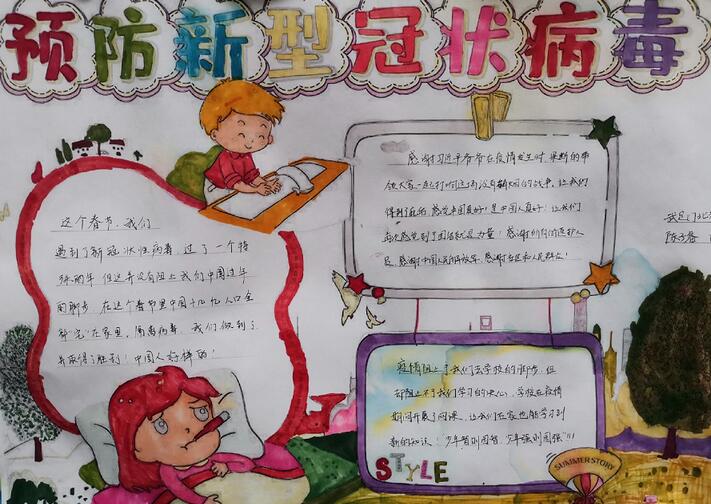 预防新型冠状病毒
这个春节，我们
遇到了新冠状性病毒，过了一个特
殊的年，但这并没有阻止我们中国过年
的脚步，在这个春节里中国十四亿人口全
都"宅"在家里，隔离病毒，我们做到了
并取得了胜利！中国人好样的！
感谢习近平爷爷在疫情发生时，果断的带
领大家一起打响这场没有硝烟的战争，让我们
感觉祖国真好！是中国人真好！让我们
再次感觉到了团结就是力量！感谢
感谢中国人民解放军，感谢各民和人民群众！
疫情阻止了我们去学校的脚步，但
却阻止不了我们学习的决心，学校在疫情
期间开展了网课，让我们在家也能学习到
新的知识："少年智则国智，少年强则国强"！！！
STYLE
SUMMER STORY